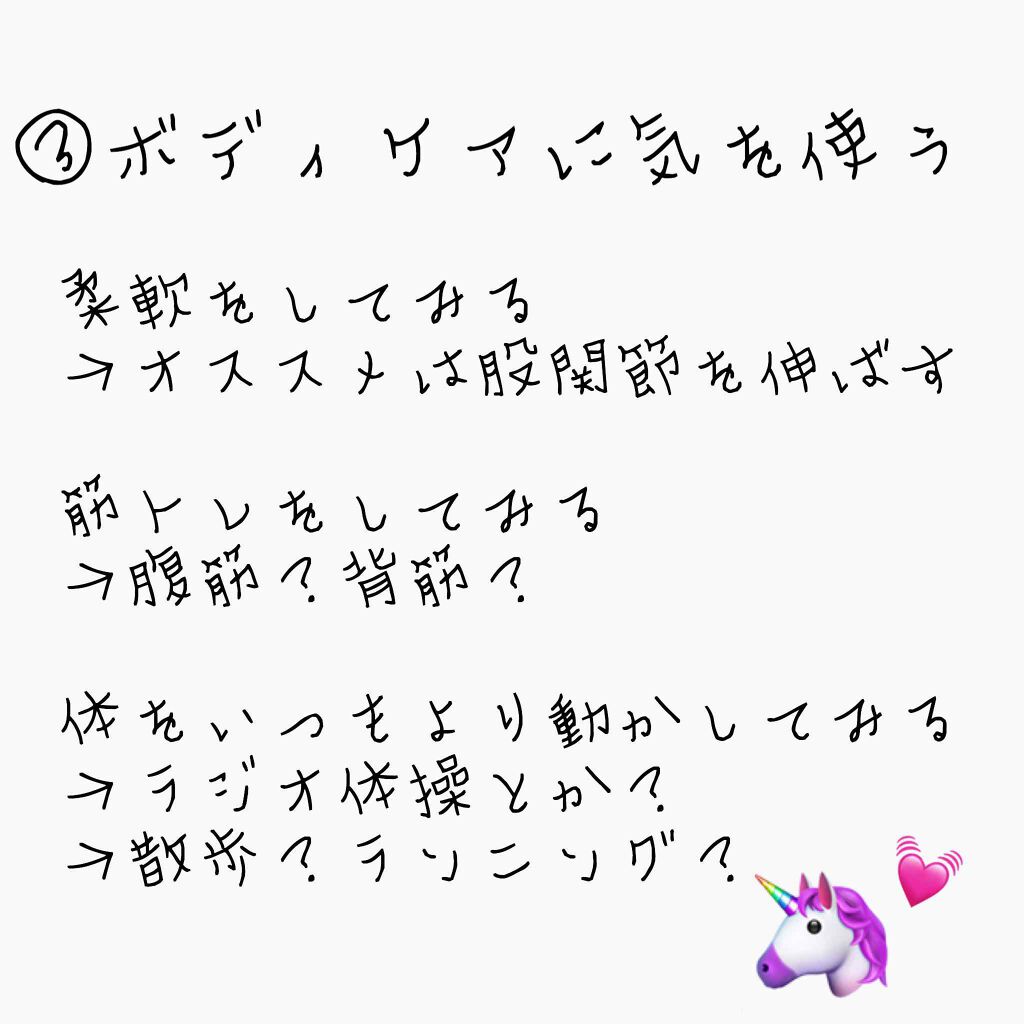 ③ボディケアに気を使う
柔軟をしてみる
→オススメは股関節を伸ばす
筋トレをしてみる
→腹筋?背筋?
体をいつもより動かしてみる
→ラジオ体操とか?
→散歩?ランニング?